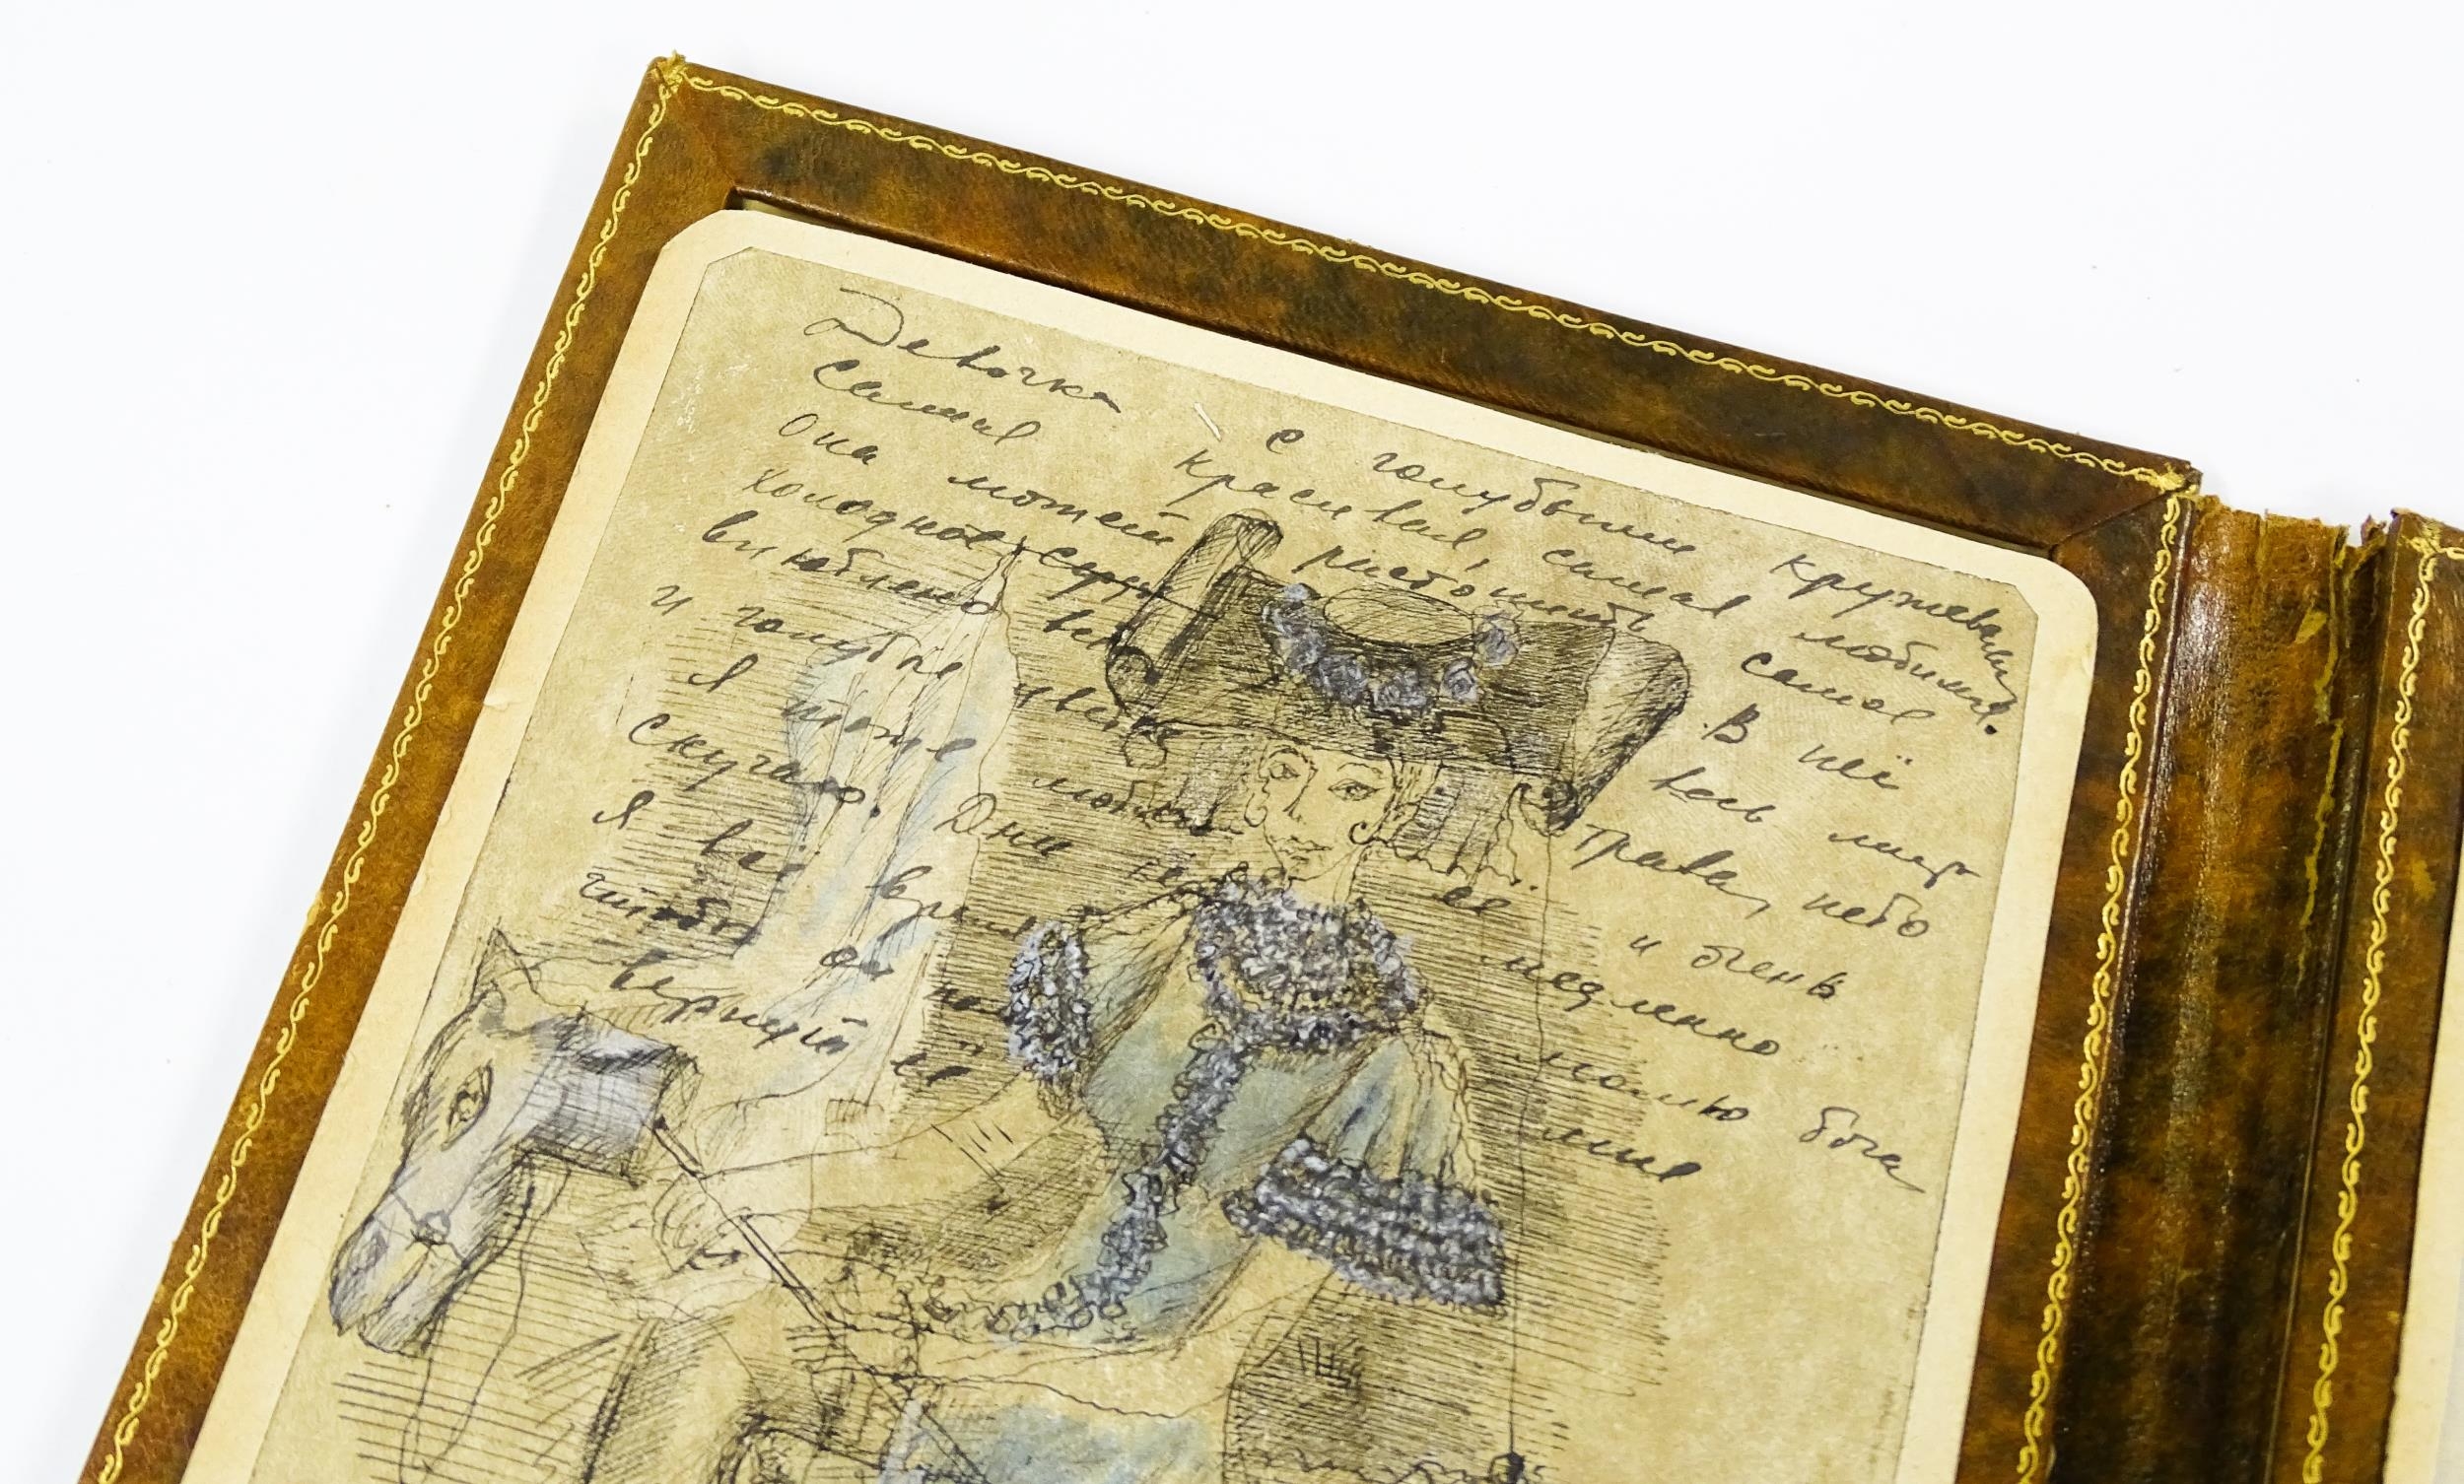 Девочка с голубыми кружевами
самая красивая, самая любимая.
Она может растопить самое
холодное сердце. В неё
влюблено весь мир
и голубые цветы трава, небо
Я тоже люблю её и очень
скучаю. Дни медленно
Я всё время молю бога
чтобы он мне
вернул её